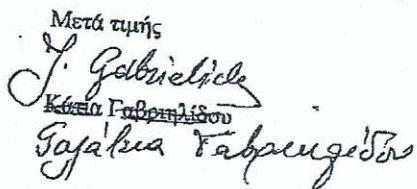 Μετά τιμής
J. Gabrielides
Κάτια Γαβριηλίδου
Γαβριηλίδου